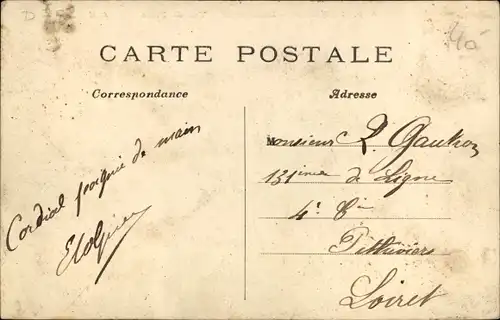 CARTE POSTALE
Correspondance
Adresse
Cordial poignée de main
Monsieur
131ème de Ligne
4e Cie
Pithiviers
Loiret